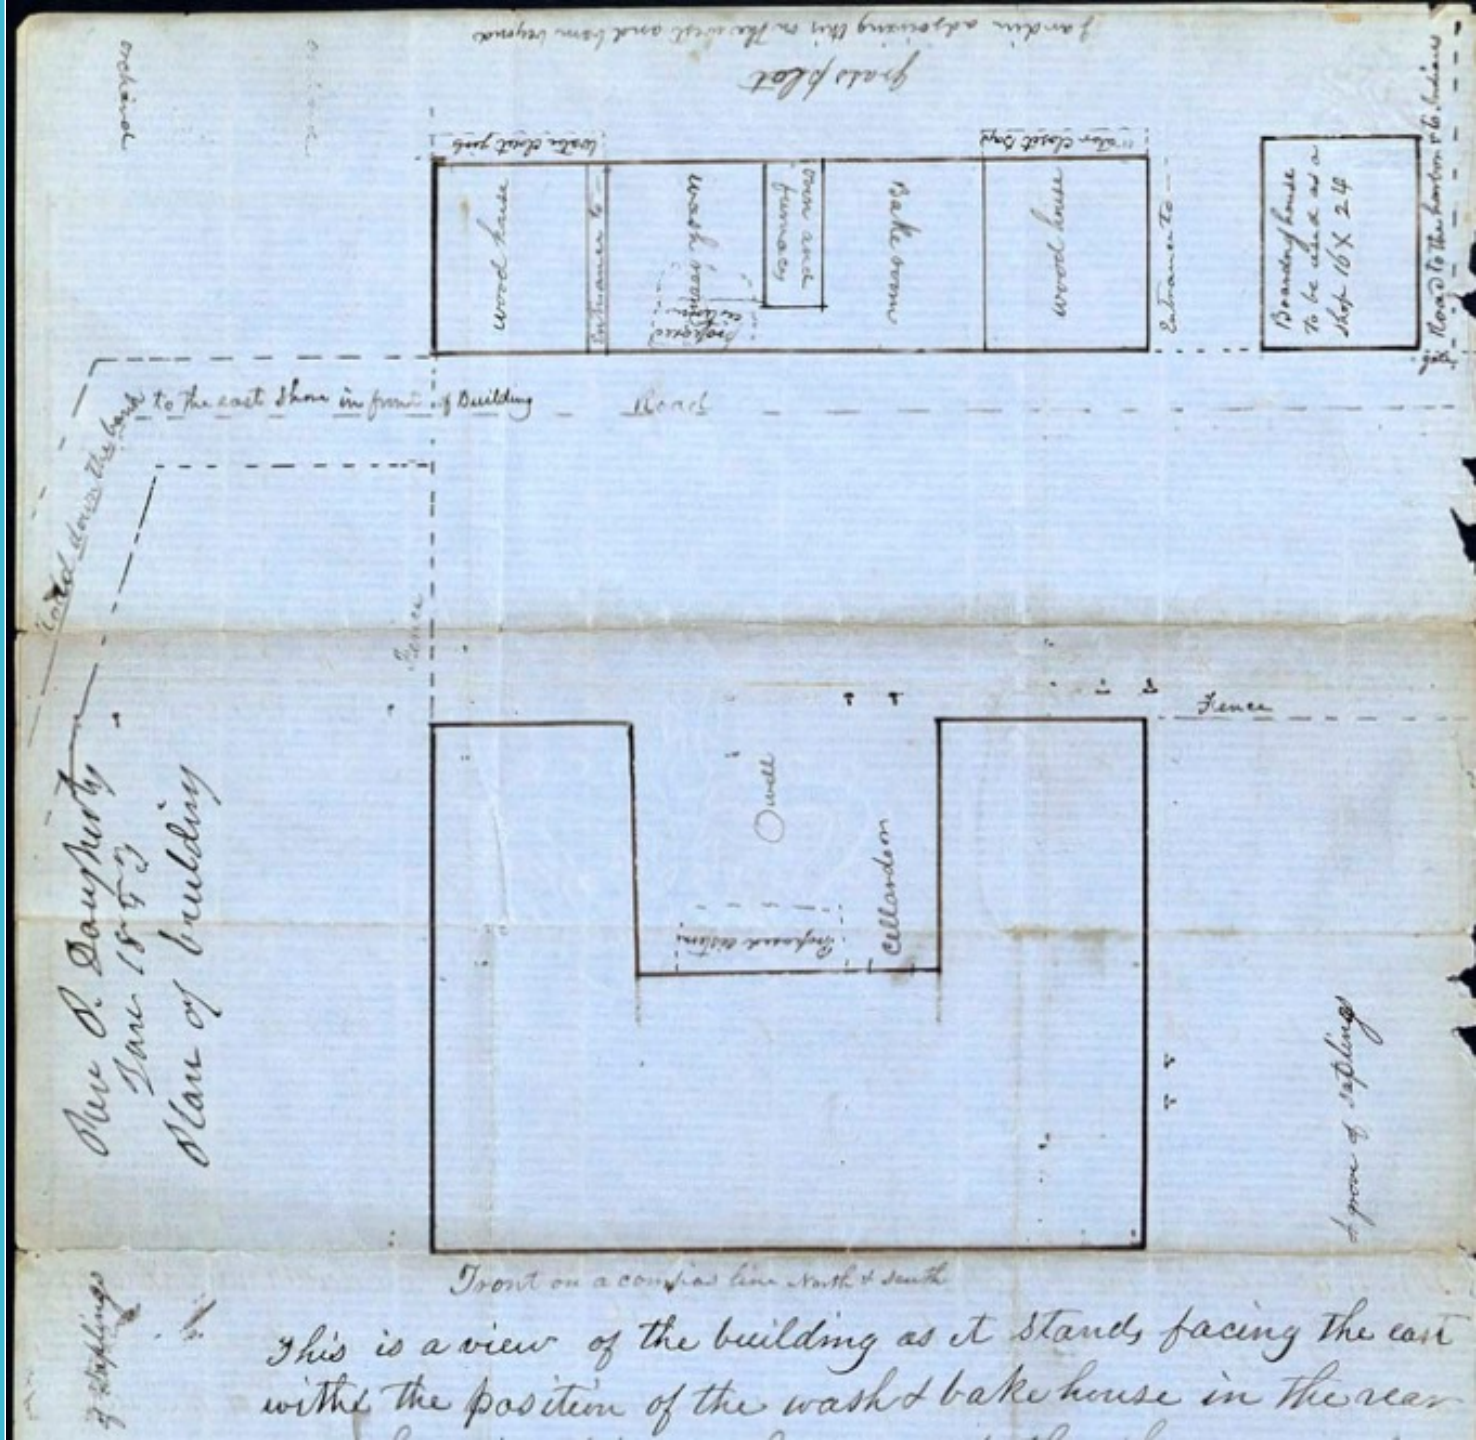 Garden adjoining this on the west and barn beyond
grass plat
orchard
Water closet girls
Water closet boys
wood house
Entrance to
wash room
proposed
cistern
Oven and
furnace
Bake room
wood house
Entrance to
Boarding house
to be used as a
shop 16 X 24
Road to the harbor & to Indians
gate
Road down the bank to the east shore in front of Building
Road
Fence
Fence
well
Cellardoor
Proposed cistern
Rev P. Dougherty
Jan 1853
Plan of building
A grove of sapling
Front on a compas line North & South
of saplings
This is a view of the building as it stands facing the east
with the position of the wash & bake house in the rear